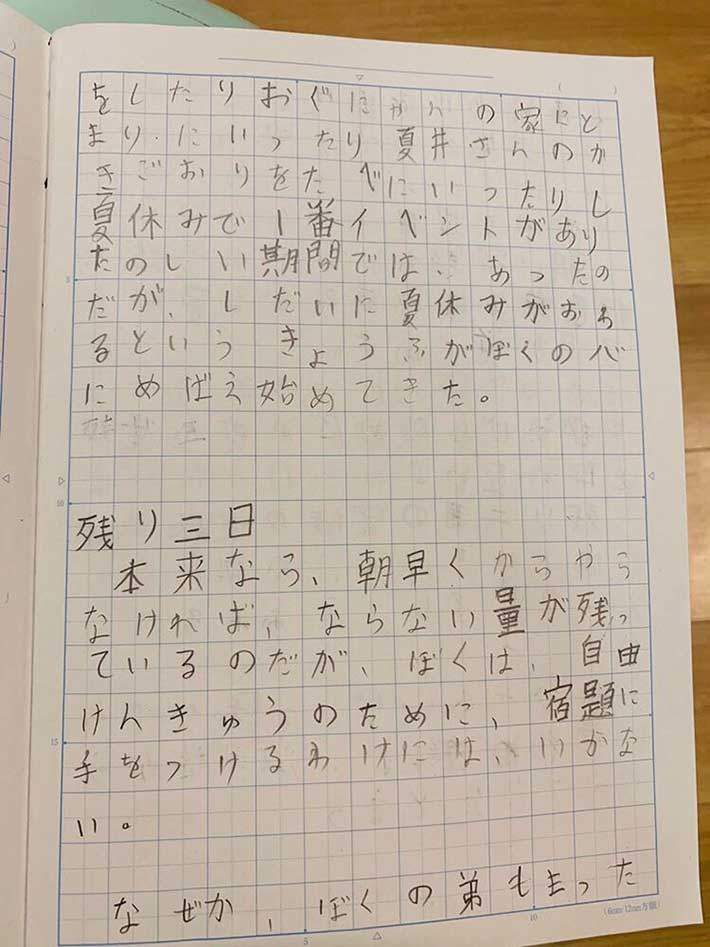 をしたりおぐにゃんの家にと
まり.にいったり夏井さんのか
きごおりをたべにいったりし
夏休みで1番イベントがあり
たのしい期間では、あったの
だが、しだいに夏休みがおわ
るというきょうふがぼくの心
にめばえ始めてきた。
残り三日
本来なら、朝早くからやら
なければ、ならない量が残っ
ているのだが、ぼくは、自由
けんきゅうのために、宿題に
手をつけるわけには、いかな
い。
なぜか、ぼくの弟もまった
5
10
15
5
10
(6mm 12mm方眼)